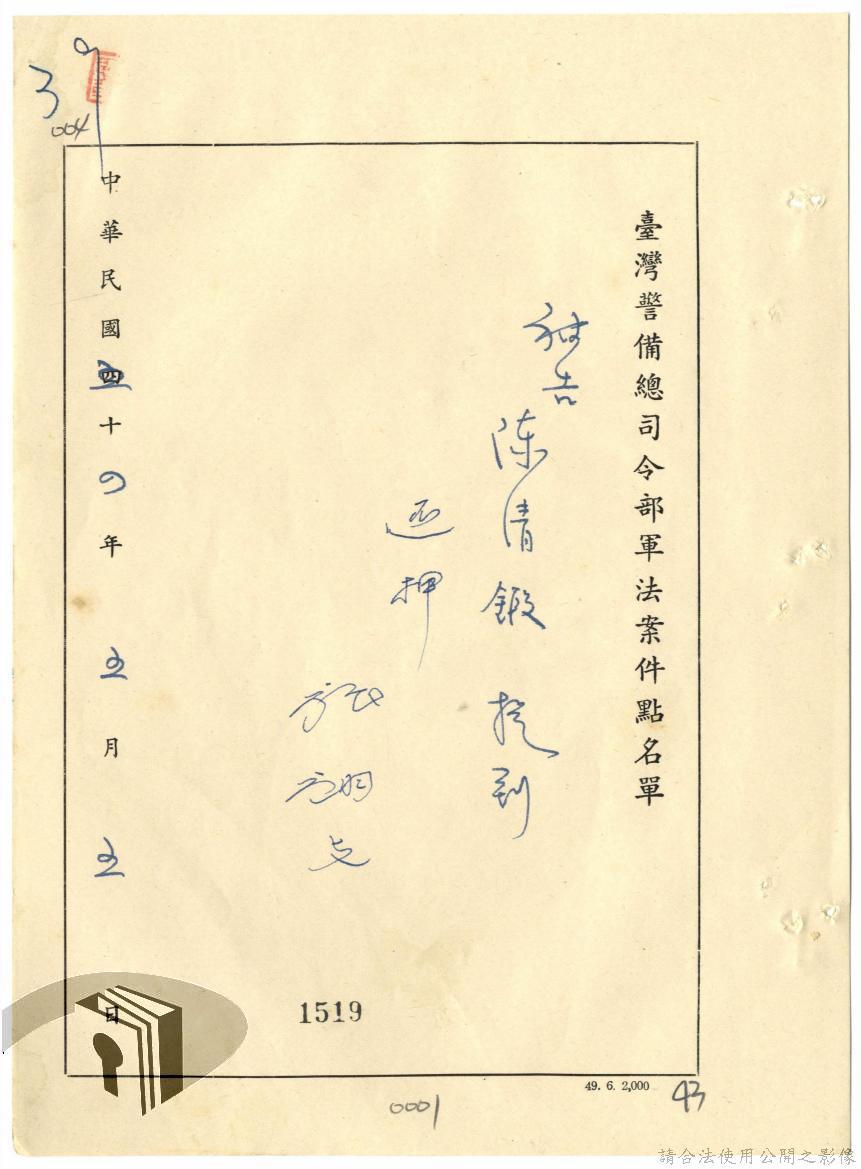 臺灣警備總司令部軍法案件點名單
被告
陳清鍛 提到
還押
中華民國五十四年 五月 五日
004
1519
49. 6. 2,000
43
0001
請合法使用公開之影像